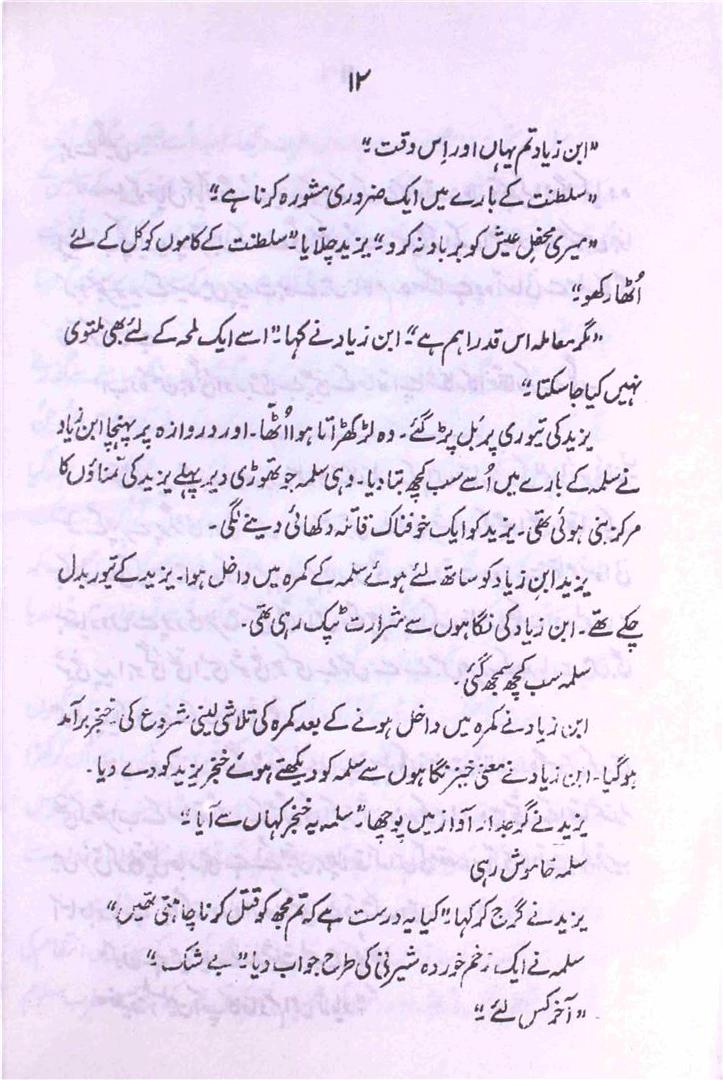 ۱۲
"ابن زیاد تم یہاں اور اِس وقت"
"سلطنت کے بارے میں ایک ضروری مشورہ کرنا ہے"
"میری محفل عیش کو برباد نہ کرو" یزید چلّایا "سلطنت کے کاموں کو کل کے لئے
اُٹھا رکھو"
"مگر معاملہ اس قدر اہم ہے" ابن زیاد نے کہا "اسے ایک لمحہ کے لئے بھی ملتوی
نہیں کیا جا سکتا"
یزید کی تیوری پر بَل پڑ گئے۔ وہ لڑکھڑاتا ہوا اُٹھا۔ اور دروازہ پر پہنچا ابن زیاد
نے سلمہ کے بارے میں اُسے سب کچھ بتا دیا۔ وہی سلمہ جو تھوڑی دیر پہلے یزید کی تمناؤں کا
مرکز بنی ہوئی تھی۔ یزید کو ایک خوفناک قاتلہ دکھائی دینے لگی۔
یزید ابن زیاد کو ساتھ لئے ہوئے سلمہ کے کمرہ میں داخل ہوا۔ یزید کے تیور بدل
چکے تھے۔ ابن زیاد کی نگاہوں سے شرارت ٹپک رہی تھی۔
سلمہ سب کچھ سمجھ گئی۔
ابن زیاد نے کمرہ میں داخل ہونے کے بعد کمرہ کی تلاشی لینی شروع کی۔ خنجر برآمد
ہو گیا۔ ابن زیاد نے معنی خیز نگاہوں سے سلمہ کو دیکھتے ہوئے خنجر یزید کو دے دیا۔
یزید نے گرجدار آواز میں پوچھا "سلمہ یہ خنجر کہاں سے آیا"
سلمہ خاموش رہی
یزید نے گرج کر کہا "کیا یہ درست ہے کہ تم مجھ کو قتل کرنا چاہتی تھیں"
سلمہ نے ایک زخم خوردہ شیرنی کی طرح جواب دیا "بے شک"
"آخر کس لئے"